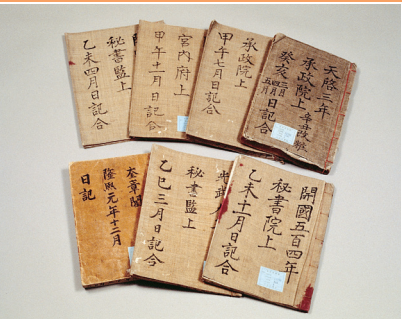 天啓三年
承政院上
癸亥
日記合
承政院上
甲午七月日記合
宮内府上
甲午十一月日記合
開
秘書監上
乙未四月日記合
開國五百四年
秘書院上
乙未十一月日記合
光武
秘書監上
乙巳三月日記合
奎章閣
隆熙元年十二月
日記